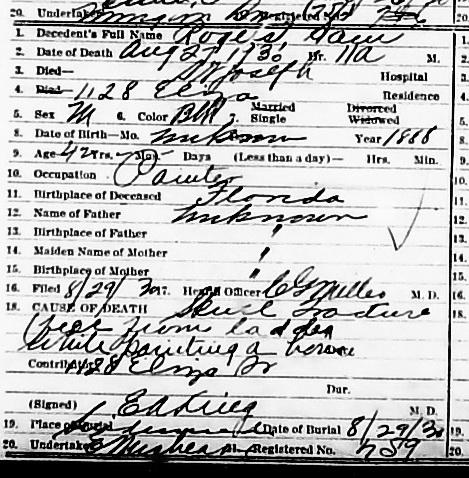 20. Undertaker
1. Decedent's Full Name Rogers, Sam
2. Date of Death Aug 27 1930 Hr. 11a M.
3. Died— St Joseph Hospital
4. Died— 1128 Eliza Residence
5. Sex M 6. Color Blk 7. Married Single Divorced Widowed
8. Date of Birth—Mo. Unknown Year 1888
9. Age 42 Yrs. Mos. Days (Less than a day)— Hrs. Min.
10. Occupation Painter
11. Birthplace of Deceased Florida
12. Name of Father Unknown
13. Birthplace of Father "
14. Maiden Name of Mother "
15. Birthplace of Mother "
16. Filed 8/29/30 17. Health Officer M. D.
18. CAUSE OF DEATH Skull fracture
from ladder
while painting a house
Contributory 1128 Eliza St
Dur.
(Signed) M. D.
19. Place of Burial Date of Burial 8/29/30
20. Undertaker Registered No. 789